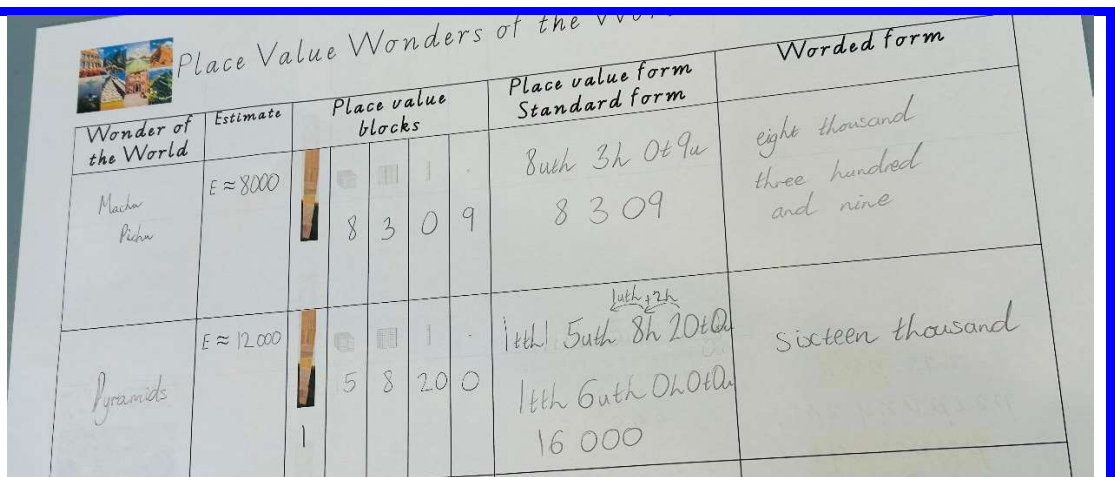 Place Value Wonders of the
Wonder of the World
Estimate
Place value blocks
Place value form
Standard form
Worded form
Machu
Pichu
E ≈ 8000
8 3 0 9
8uth 3h 0t 9u
8 309
eight thousand
three hundred
and nine
Pyramids
E ≈ 12 000
1 5 8 20 0
1uth +2h
1tth 5uth 8h 20t 0u
1tth 6uth 0h 0t 0u
16 000
sixteen thousand